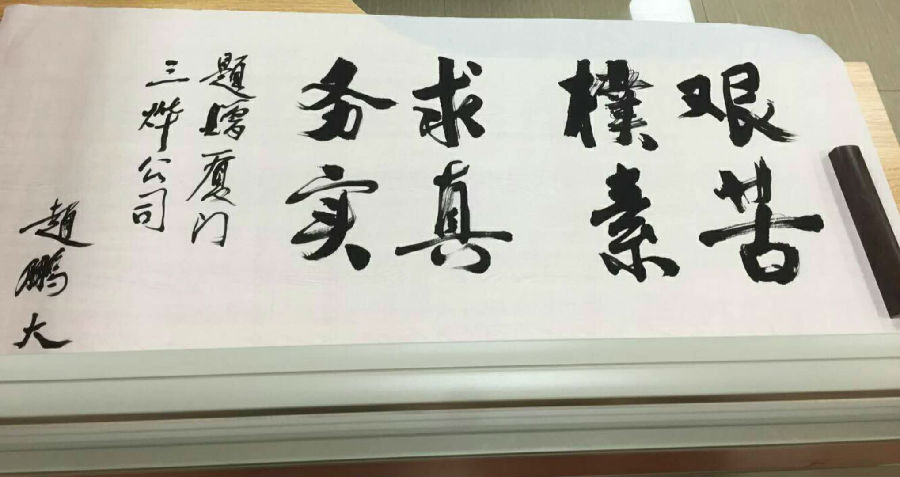 艰苦
樸素
求真
务实
题赠厦门
三烨公司
赵鹏大